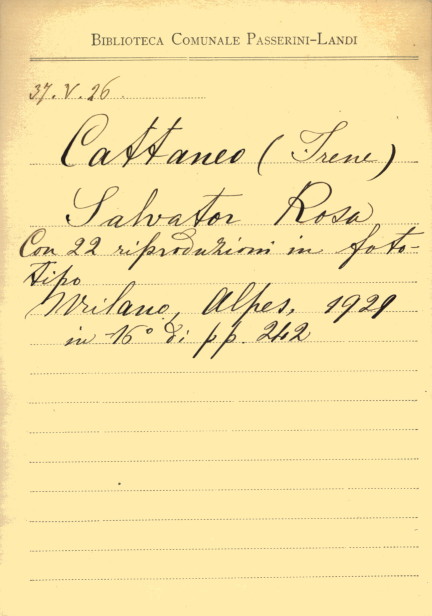 BIBLIOTECA COMUNALE PASSERINI-LANDI
37.V.26
Cattaneo (Irene)
Salvator Rosa
Con 22 riproduzioni in foto-
tipo
Milano, Alpes, 1929
in 16° di pp. 242